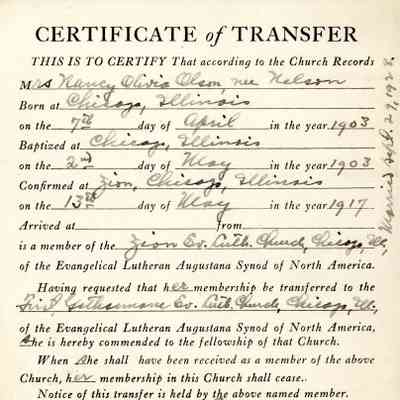 CERTIFICATE of TRANSFER
THIS IS TO CERTIFY That according to the Church Records
Mrs Nancy Olivia Olson nee Nelson
Born at Chicago, Illinois
on the 7th day of April in the year 1903
Baptized at Chicago, Illinois
on the 2nd day of May in the year 1903
Confirmed at Zion, Chicago, Illinois
on the 13th day of May in the year 1917
Arrived at from
is a member of the Zion Ev. Luth. Church, Chicago, Ill.
of the Evangelical Lutheran Augustana Synod of North America.
Having requested that her membership be transferred to the
Gethsemane Ev. Luth. Church, Chicago, Ill.,
of the Evangelical Lutheran Augustana Synod of North America,
She is hereby commended to the fellowship of that Church.
When She shall have been received as a member of the above
Church, her membership in this Church shall cease.
Notice of this transfer is held by the above named member.
Married Sept. 29, 1928.